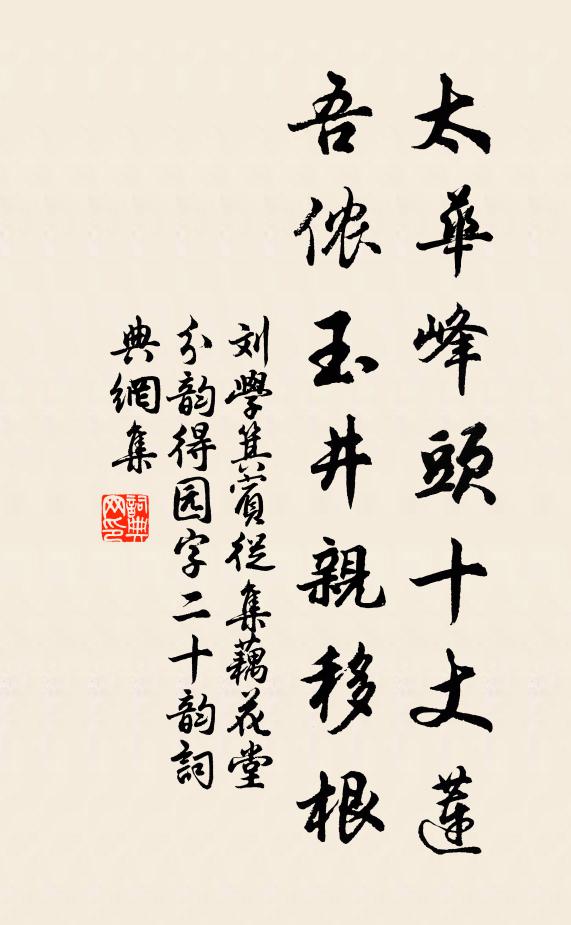 太華峰頭十丈蓮
吾侬玉井親移根
刘學箕賓從集藕花堂
分韵得园字二十韵詞
典網集
詞典網印